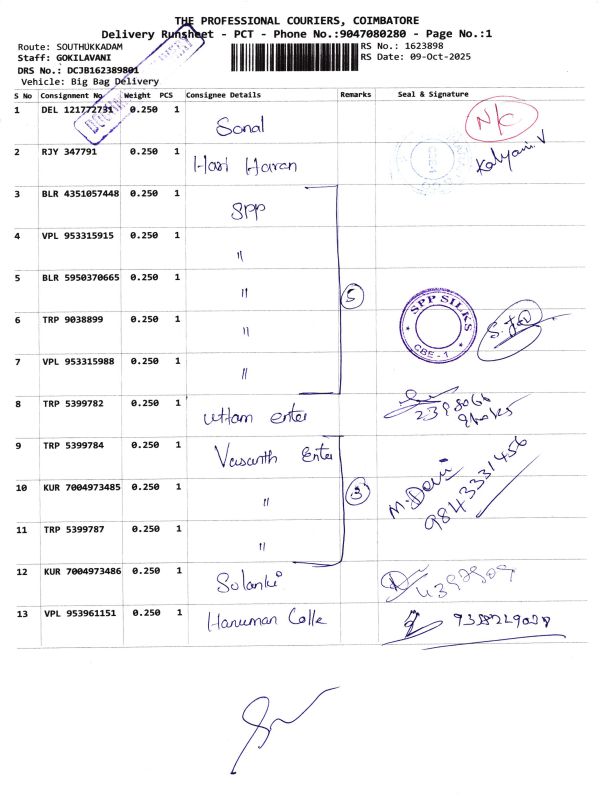 THE PROFESSIONAL COURIERS, COIMBATORE
Delivery Runsheet - PCT - Phone No.:9047080280 - Page No.:1
Route: SOUTHUKKADAM
RS No.: 1623898
Staff: GOKILAVANI
RS Date: 09-Oct-2025
DRS No.: DCJB162389801
Vehicle: Big Bag Delivery
S No Consignment No Weight PCS Consignee Details Remarks Seal & Signature
1 DEL 121772731 0.250 1 Sonal N/C
2 RJY 347791 0.250 1 Hari Haran Kalyani. V
3 BLR 4351057448 0.250 1 SPP
4 VPL 953315915 0.250 1 "
5 BLR 5950370665 0.250 1 " 5
6 TRP 9038899 0.250 1 " SPP SILKS CBE-1
7 VPL 953315988 0.250 1 "
8 TRP 5399782 0.250 1 uttam enter
9 TRP 5399784 0.250 1 Vasanth Enter
10 KUR 7004973485 0.250 1 " 3 M. Devi 9843331456
11 TRP 5399787 0.250 1 "
12 KUR 7004973486 0.250 1 Solanki
13 VPL 953961151 0.250 1 Hanuman Colle